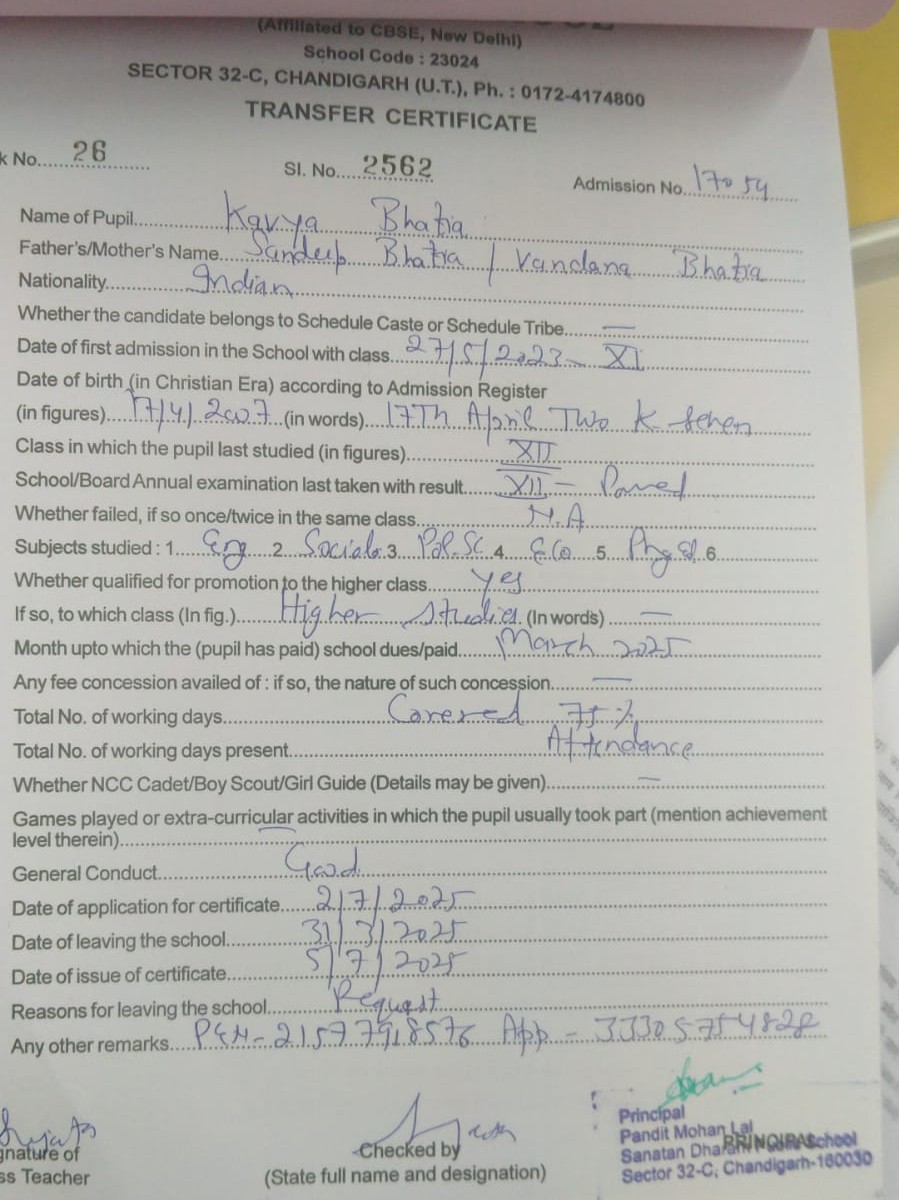 (Affiliated to CBSE, New Delhi)
School Code : 23024
SECTOR 32-C, CHANDIGARH (U.T.), Ph. : 0172-4174800
TRANSFER CERTIFICATE
k No..... 26 Sl. No..... 2562 Admission No. 17054
Name of Pupil..... Kavya Bhatia
Father's/Mother's Name.... Sandeep Bhatia / Vandana Bhatia
Nationality..... Indian
Whether the candidate belongs to Schedule Caste or Schedule Tribe..... —
Date of first admission in the School with class... 27/5/2023 – XI
Date of birth (in Christian Era) according to Admission Register
(in figures).... 17/4/2007 (in words) 17Th April Two K Seven
Class in which the pupil last studied (in figures)..... XII
School/Board Annual examination last taken with result..... XII – Passed
Whether failed, if so once/twice in the same class..... N.A
Subjects studied : 1.... Eng 2. Socialo 3. Pol. Sc 4. Eco 5. Phy Ed. 6.
Whether qualified for promotion to the higher class..... yes
If so, to which class (In fig.)..... Higher Studies (In words) —
Month upto which the (pupil has paid) school dues/paid..... March 2025
Any fee concession availed of : if so, the nature of such concession..... —
Total No. of working days..... Covered 75 %
Total No. of working days present..... Attendance
Whether NCC Cadet/Boy Scout/Girl Guide (Details may be given)..... —
Games played or extra-curricular activities in which the pupil usually took part (mention achievement
level therein)..... —
General Conduct..... Good
Date of application for certificate..... 2/7/2025
Date of leaving the school..... 31/3/2025
Date of issue of certificate..... 5/7/2025
Reasons for leaving the school..... Request
Any other remarks.... PEN – 21577918576 App – 33305754828
gnature of
ss Teacher
Checked by
(State full name and designation)
Principal
Pandit Mohan Lal
Sanatan Dharam School
PRINCIPAL
Sector 32-C, Chandigarh-160030